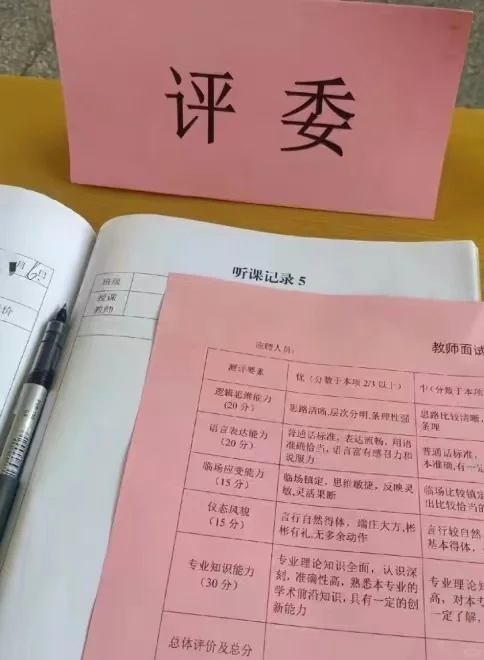 评委
月6日
价
听课记录5
班级
授课
教师
应聘人员:
教师面试
测评要素
优(分数于本项2/3以上)
中(分数于本项
逻辑思维能力
(20分)
思路清晰,层次分明,条理性强
思路比较清晰,
条理
语言表达能力
(20分)
普通话标准,表达流畅,用语
准确恰当,语言富有感召力和
说服力
普通话标准,
本准确,有一定
临场应变能力
(15分)
临场镇定,思维敏捷,反映灵
敏,灵活果断
临场比较镇定
出比较恰当的
仪态风貌
(15分)
言行自然得体,端庄大方,彬
彬有礼,无多余动作
言行较自然
基本得体,
专业知识能力
(30分)
专业理论知识全面,认识深
刻,准确性高,熟悉本专业的
学术前沿知识,具有一定的创
新能力
专业理论知
高,对本专
一定了解,
总体评价及总分